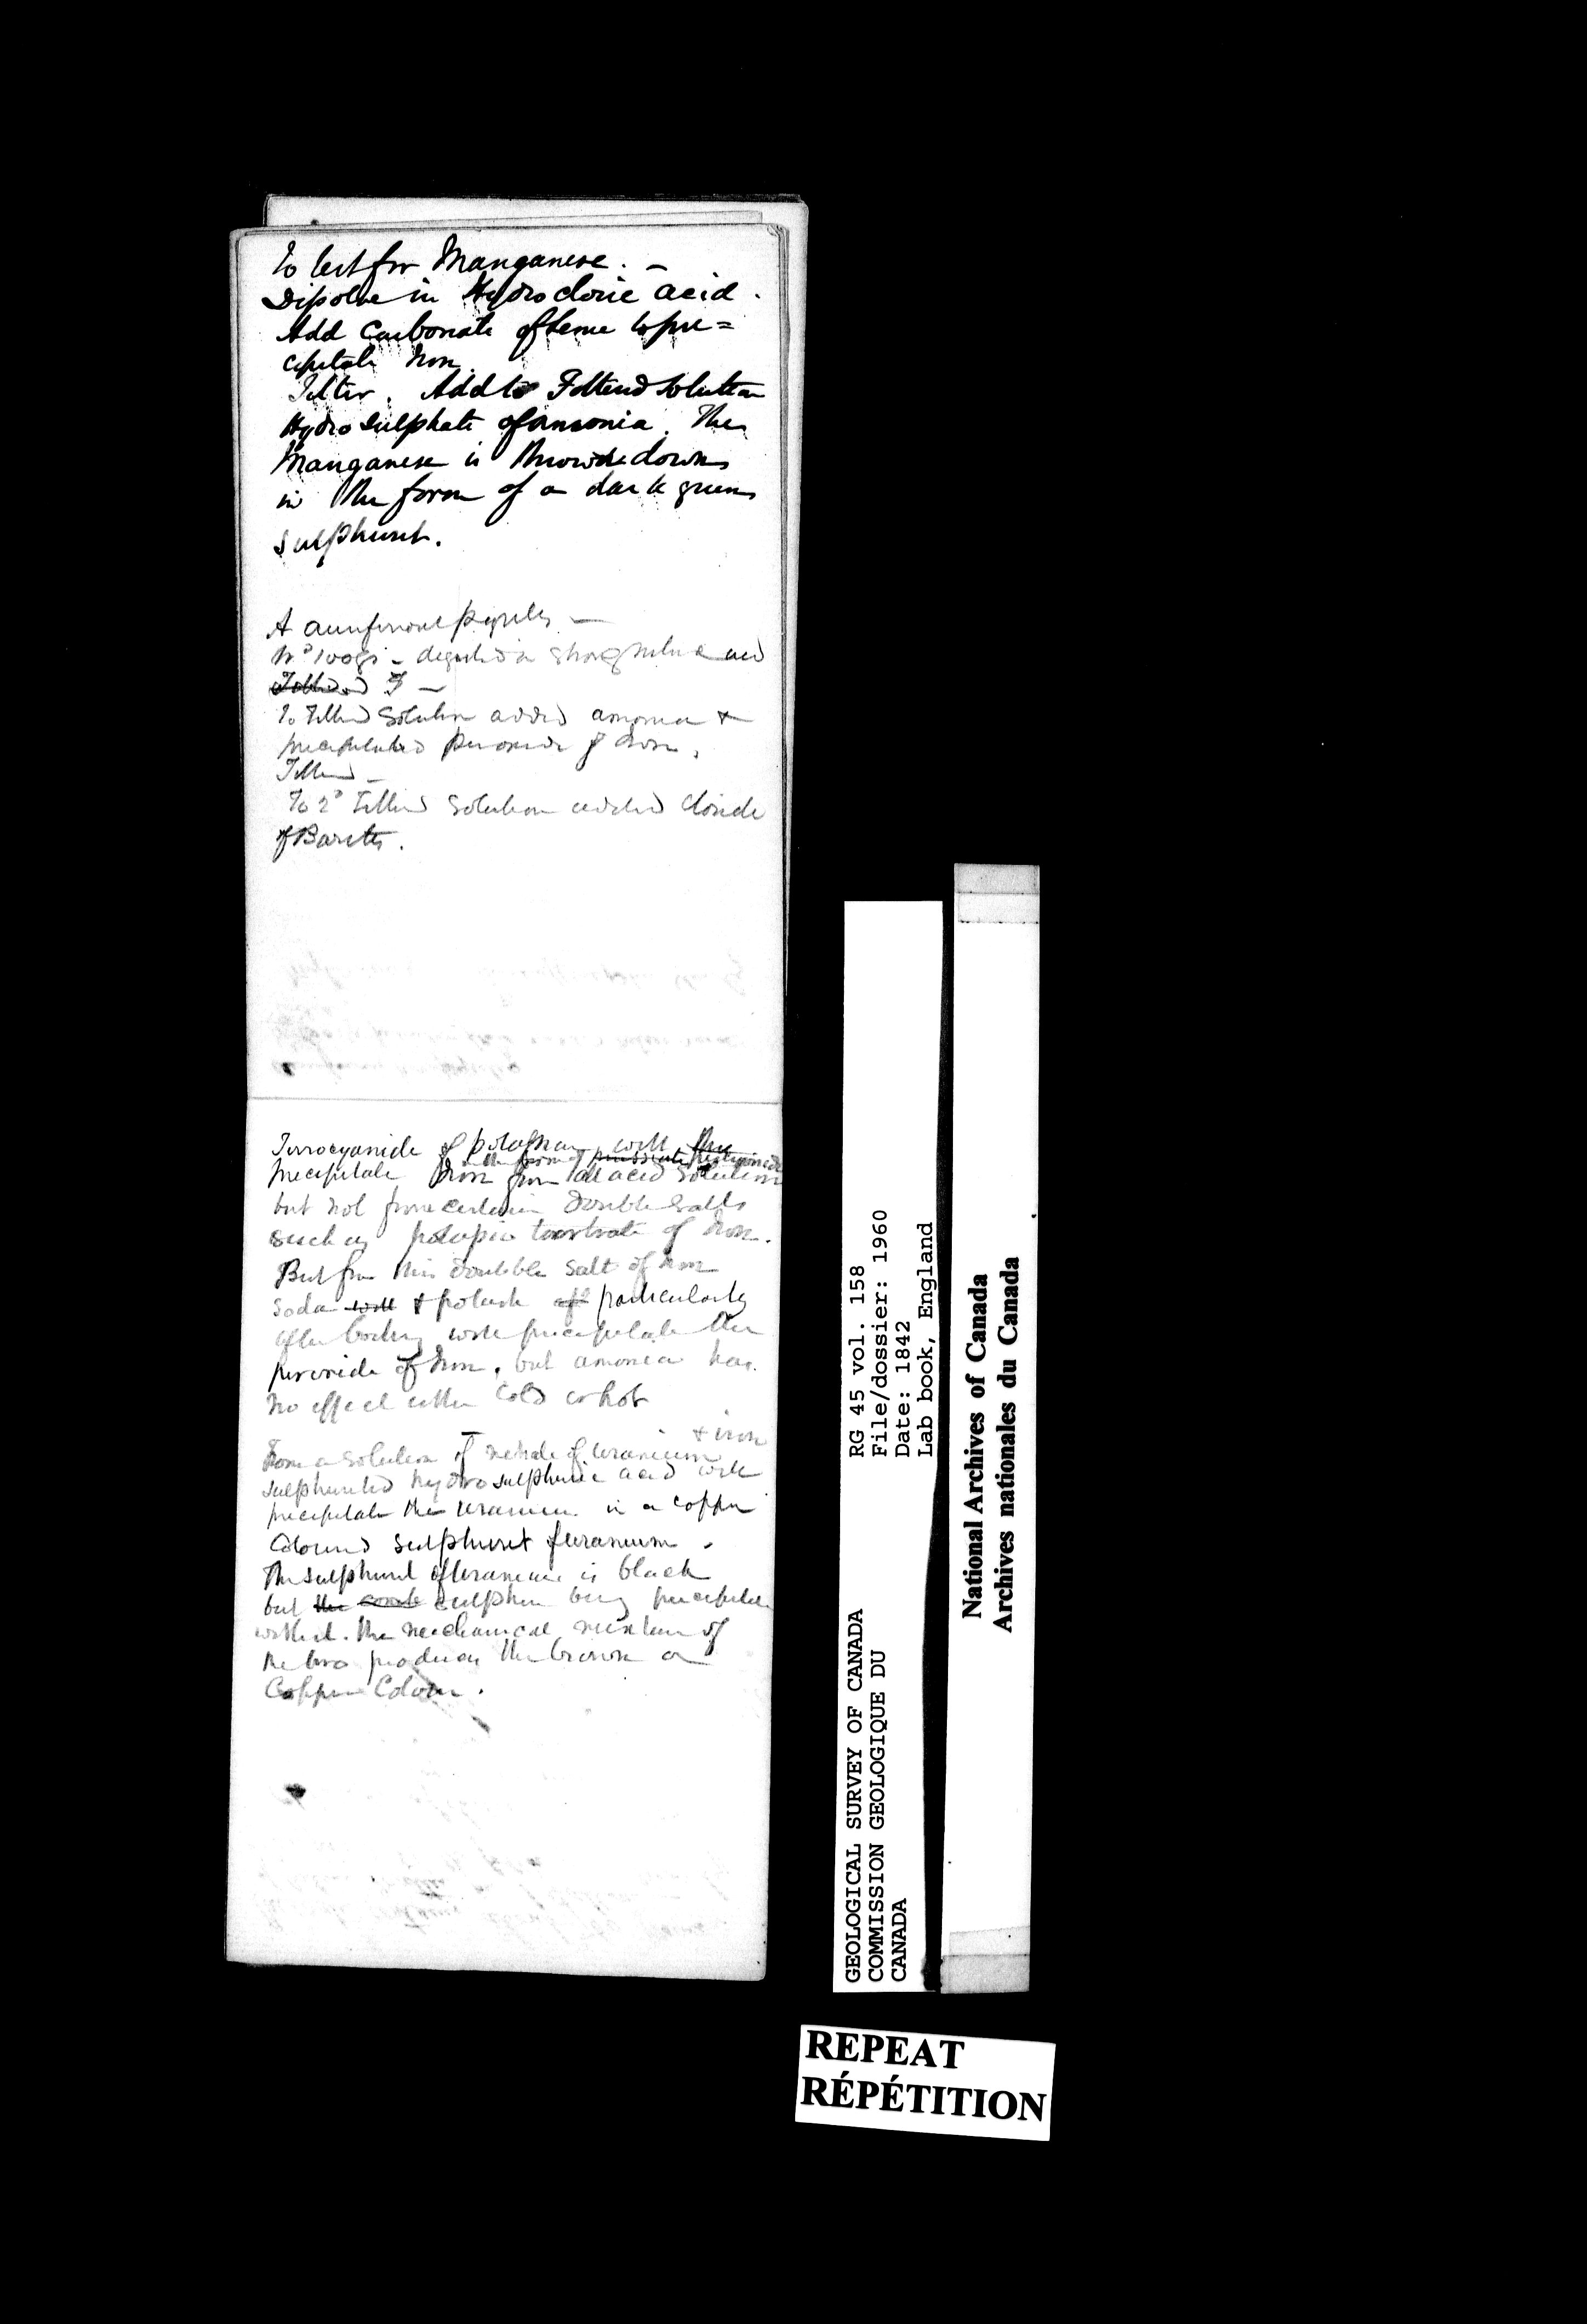 To test for Manganese. —
Dissolve in Hydrocloric acid.
Add Carbonate of Lime to pre=
cipitate Iron.
Filter. Add to Filtered Solution
Hydrosulphate of amonia. The
Manganese is thrown down
in the form of a dark green
sulphuret.
A auriferous pyrites —
digested in strong nitric acid
Filtered
To filtered Solution added amonia &
precipitated peroxide of Iron.
Filtered —
To 2d Filtered Solution added Cloride
of Barites.
Ferrocyanide of potassium will
in the form of prussiate
precipitate Iron from all acid Solutions
but not from certain double Salts
such as potassio tartrate of Iron.
But from this doubble Salt of Iron
Soda will & potash particularly
after boiling will precipitate the
peroxide of Iron, but amonia has
no effect either Cold or hot
& iron
From a Solution of nitrate of Uranium
sulphureted hydrosulphuric acid will
precipitate the Uranium in a copper
Coloured sulphuret of Uranium.
The sulphuret of Uranium is black
but the sulphur being precipitated
with it. the mechanical mixture of
the two produces the brown or
Copper Colour.
RG 45 vol. 158
File/dossier: 1960
Date: 1842
Lab book, England
GEOLOGICAL SURVEY OF CANADA
COMMISSION GEOLOGIQUE DU
CANADA
National Archives of Canada
Archives nationales du Canada
REPEAT
RÉPÉTITION